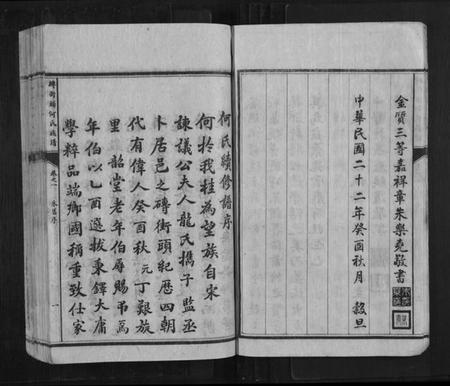 金質三等嘉祥章朱樂堯敬書
中華民國二十二年癸酉秋月 穀旦
何氏續修譜序
何於我桂為望族自宋
諫議公夫人龍氏攜子監丞
卜居邑之磚街頭紀歷四朝
代有偉人癸酉秋 元丁艱旋
里 韶堂老年伯辱賜弔焉
年伯以乙酉選拔秉鐸大庸
學粹品端鄉國稱重致仕家
磚街頭何氏族譜
卷之一
一